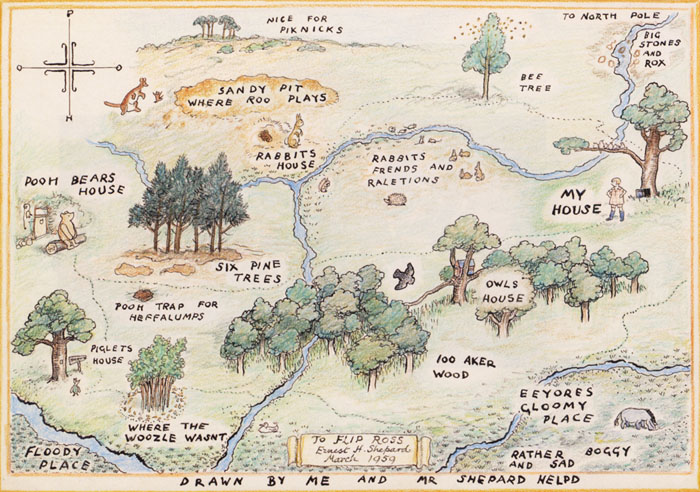 P
O O
H
NICE FOR
PIKNICKS
TO NORTH POLE
BIG
STONES
AND
ROX
BEE
TREE
SANDY PIT
WHERE ROO PLAYS
RABBITS
HOUSE
RABBITS
FRENDS AND
RALETIONS
POOH BEARS
HOUSE
MY
HOUSE
SIX PINE
TREES
POOH TRAP FOR
HEFFALUMPS
OWLS
HOUSE
PIGLETS
HOUSE
100 AKER
WOOD
WHERE THE
WOOZLE WASNT
EEYORES
GLOOMY
PLACE
FLOODY
PLACE
TO FLIP ROSS
Ernest H. Shepard
March 1959
RATHER BOGGY
AND SAD
DRAWN BY ME AND MR SHEPARD HELPD